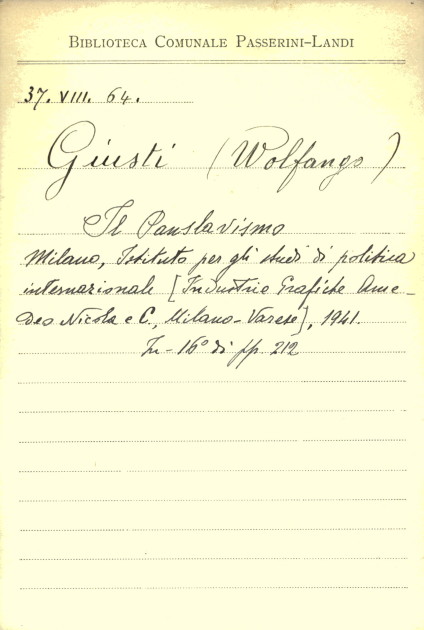 BIBLIOTECA COMUNALE PASSERINI-LANDI
37. VIII. 64.
Giusti (Wolfango)
Il Panslavismo
Milano, Istituto per gli studi di politica
internazionale [Industrie Grafiche Ame-
deo Nicola e C., Milano-Varese], 1941.
In-16° di pp. 212